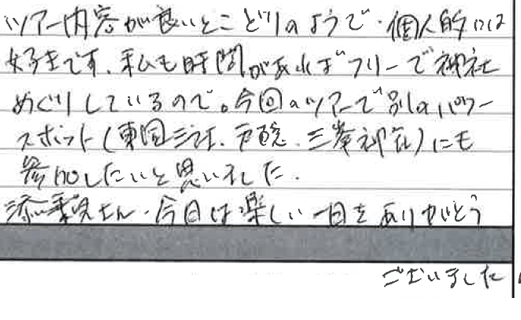 ツアー内容が良いとこどりのようで、個人的には
好きです。私も時間があればフリーで神社
めぐりしているので。今回のツアーで別のパワー
スポット(東国三社、戸隠、三峯神社)にも
参加したいと思いました。
添乗員さん、今日は楽しい一日をありがとう
ございました